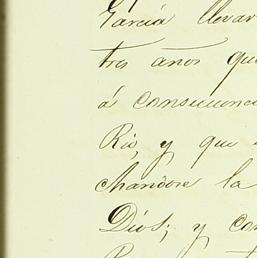 García llevar
tres años que
á consecuenci
Rio, y que
chandose la
Dios; y con